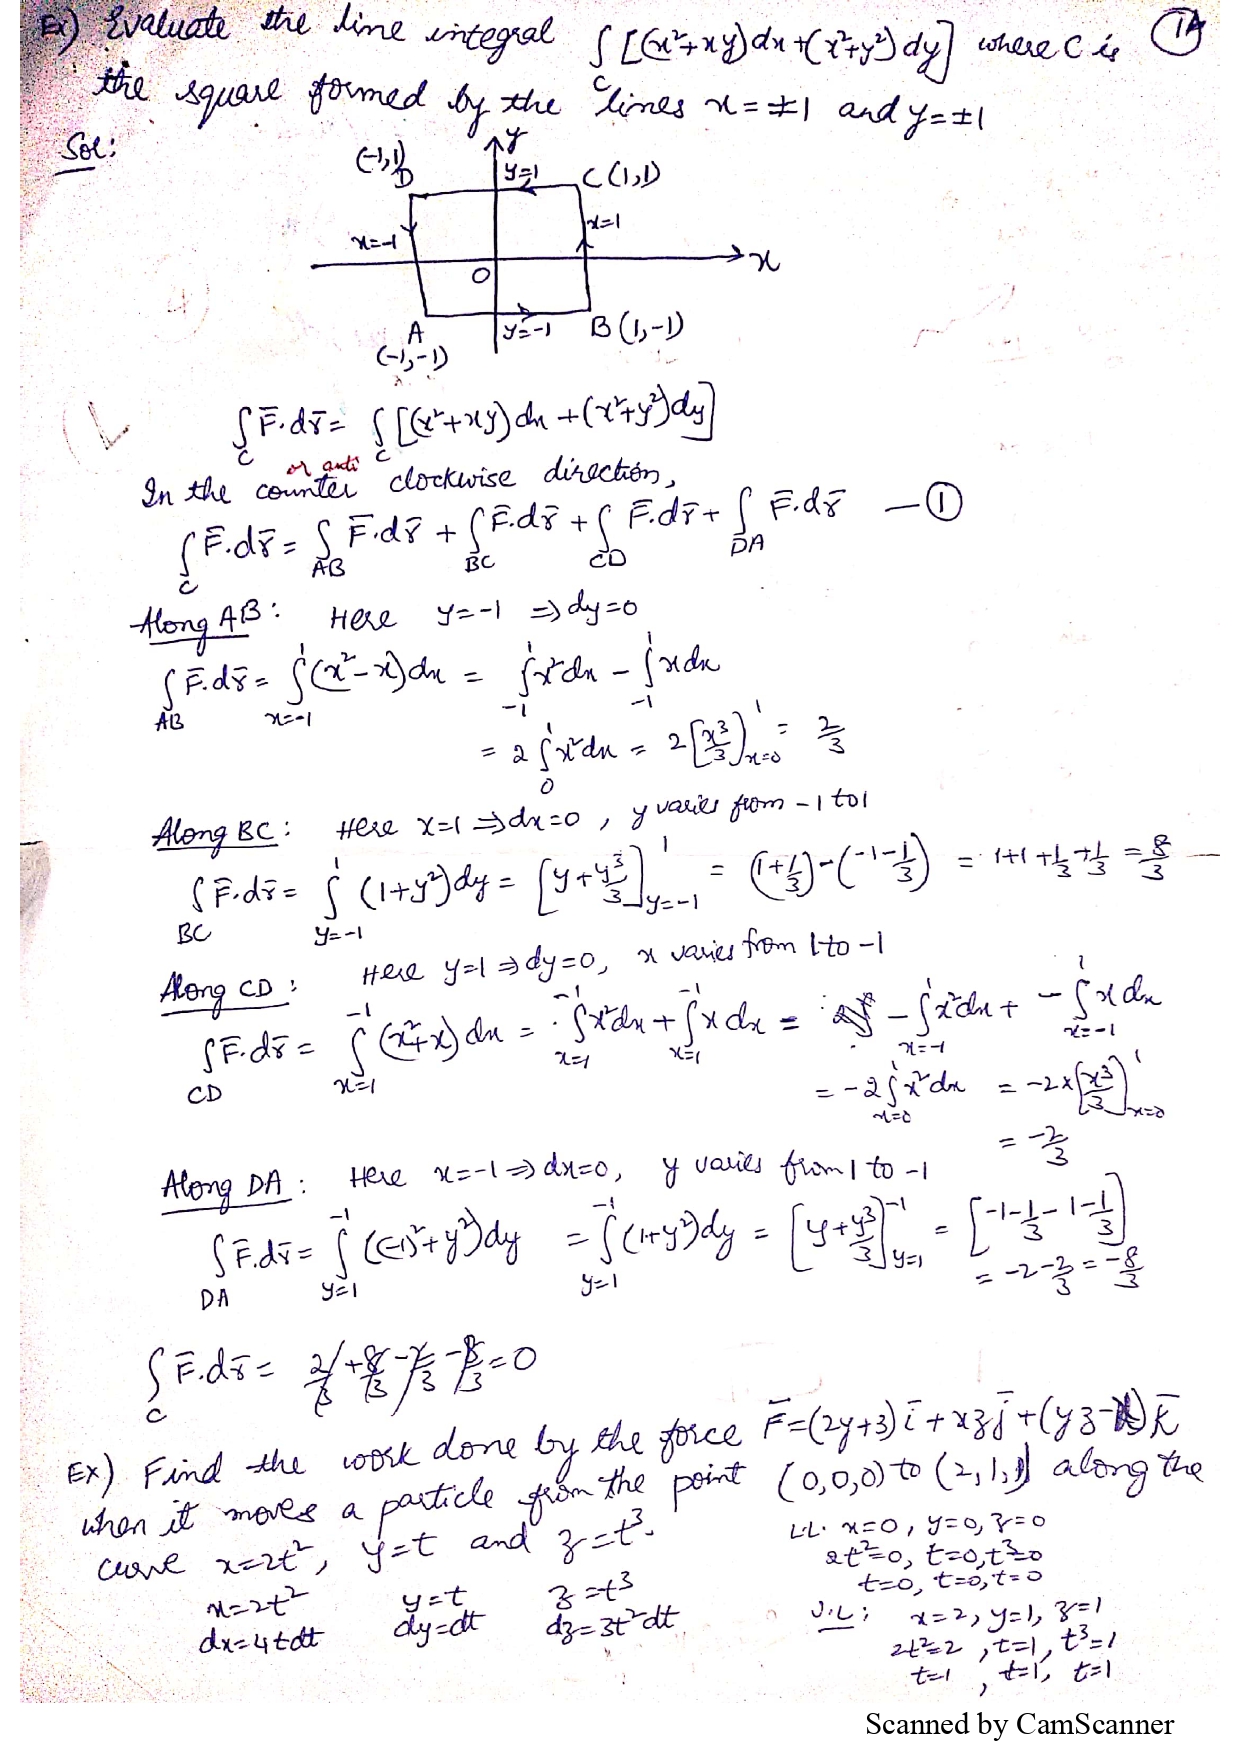 Ex) Evaluate the line integral ∫_C [(x²+xy)dx+(x²+y²)dy] where C is (14)
the square formed by the lines x=±1 and y=±1
Sol:
y
(-1,1)
D
y=1
C(1,1)
x=-1
x=1
x
O
A
(-1,-1)
y=-1
B(1,-1)
∫_C F̄.dr̄ = ∫_C [(x²+xy)dx+(x²+y²)dy]
or anti
In the counter clockwise direction,
∫_C F̄.dr̄ = ∫_AB F̄.dr̄ + ∫_BC F̄.dr̄ + ∫_CD F̄.dr̄ + ∫_DA F̄.dr̄ —①
Along AB: Here y=-1 ⇒ dy=0
∫_AB F̄.dr̄ = ∫_{x=-1}^{1} (x²-x)dx = ∫_{-1}^{1} x²dx - ∫_{-1}^{1} x dx
= 2 ∫_0^1 x²dx = 2[x³/3]_{x=0}^{1} = 2/3
Along BC: Here x=1 ⇒ dx=0, y varies from -1 to 1
∫_BC F̄.dr̄ = ∫_{y=-1}^{1} (1+y²)dy = [y+y³/3]_{y=-1}^{1} = (1+1/3)-(-1-1/3) = 1+1+1/3+1/3 = 8/3
Along CD: Here y=1 ⇒ dy=0, x varies from 1 to -1
∫_CD F̄.dr̄ = ∫_{x=1}^{-1} (x²+x)dx = ∫_{x=1}^{-1} x²dx + ∫_{x=1}^{-1} x dx = -∫_{x=-1}^{1} x²dx + -∫_{x=-1}^{1} x dx
= -2∫_{x=0}^{1} x²dx = -2×[x³/3]_{x=0}^{1}
= -2/3
Along DA: Here x=-1 ⇒ dx=0, y varies from 1 to -1
∫_DA F̄.dr̄ = ∫_{y=1}^{-1} ((-1)²+y²)dy = ∫_{y=1}^{-1} (1+y²)dy = [y+y³/3]_{y=1}^{-1} = [-1-1/3-1-1/3]
= -2-2/3 = -8/3
∫_C F̄.dr̄ = 2/3+8/3-2/3-8/3=0
Ex) Find the work done by the force F̄=(2y+3)ī+xzj̄+(yz-x)k̄
when it moves a particle from the point (0,0,0) to (2,1,1) along the
curve x=2t², y=t and z=t³.
L.L. x=0, y=0, z=0
2t²=0, t=0, t³=0
t=0, t=0, t=0
x=2t² y=t z=t³
dx=4tdt dy=dt dz=3t²dt
U.L: x=2, y=1, z=1
2t²=2, t=1, t³=1
t=1, t=1, t=1
Scanned by CamScanner